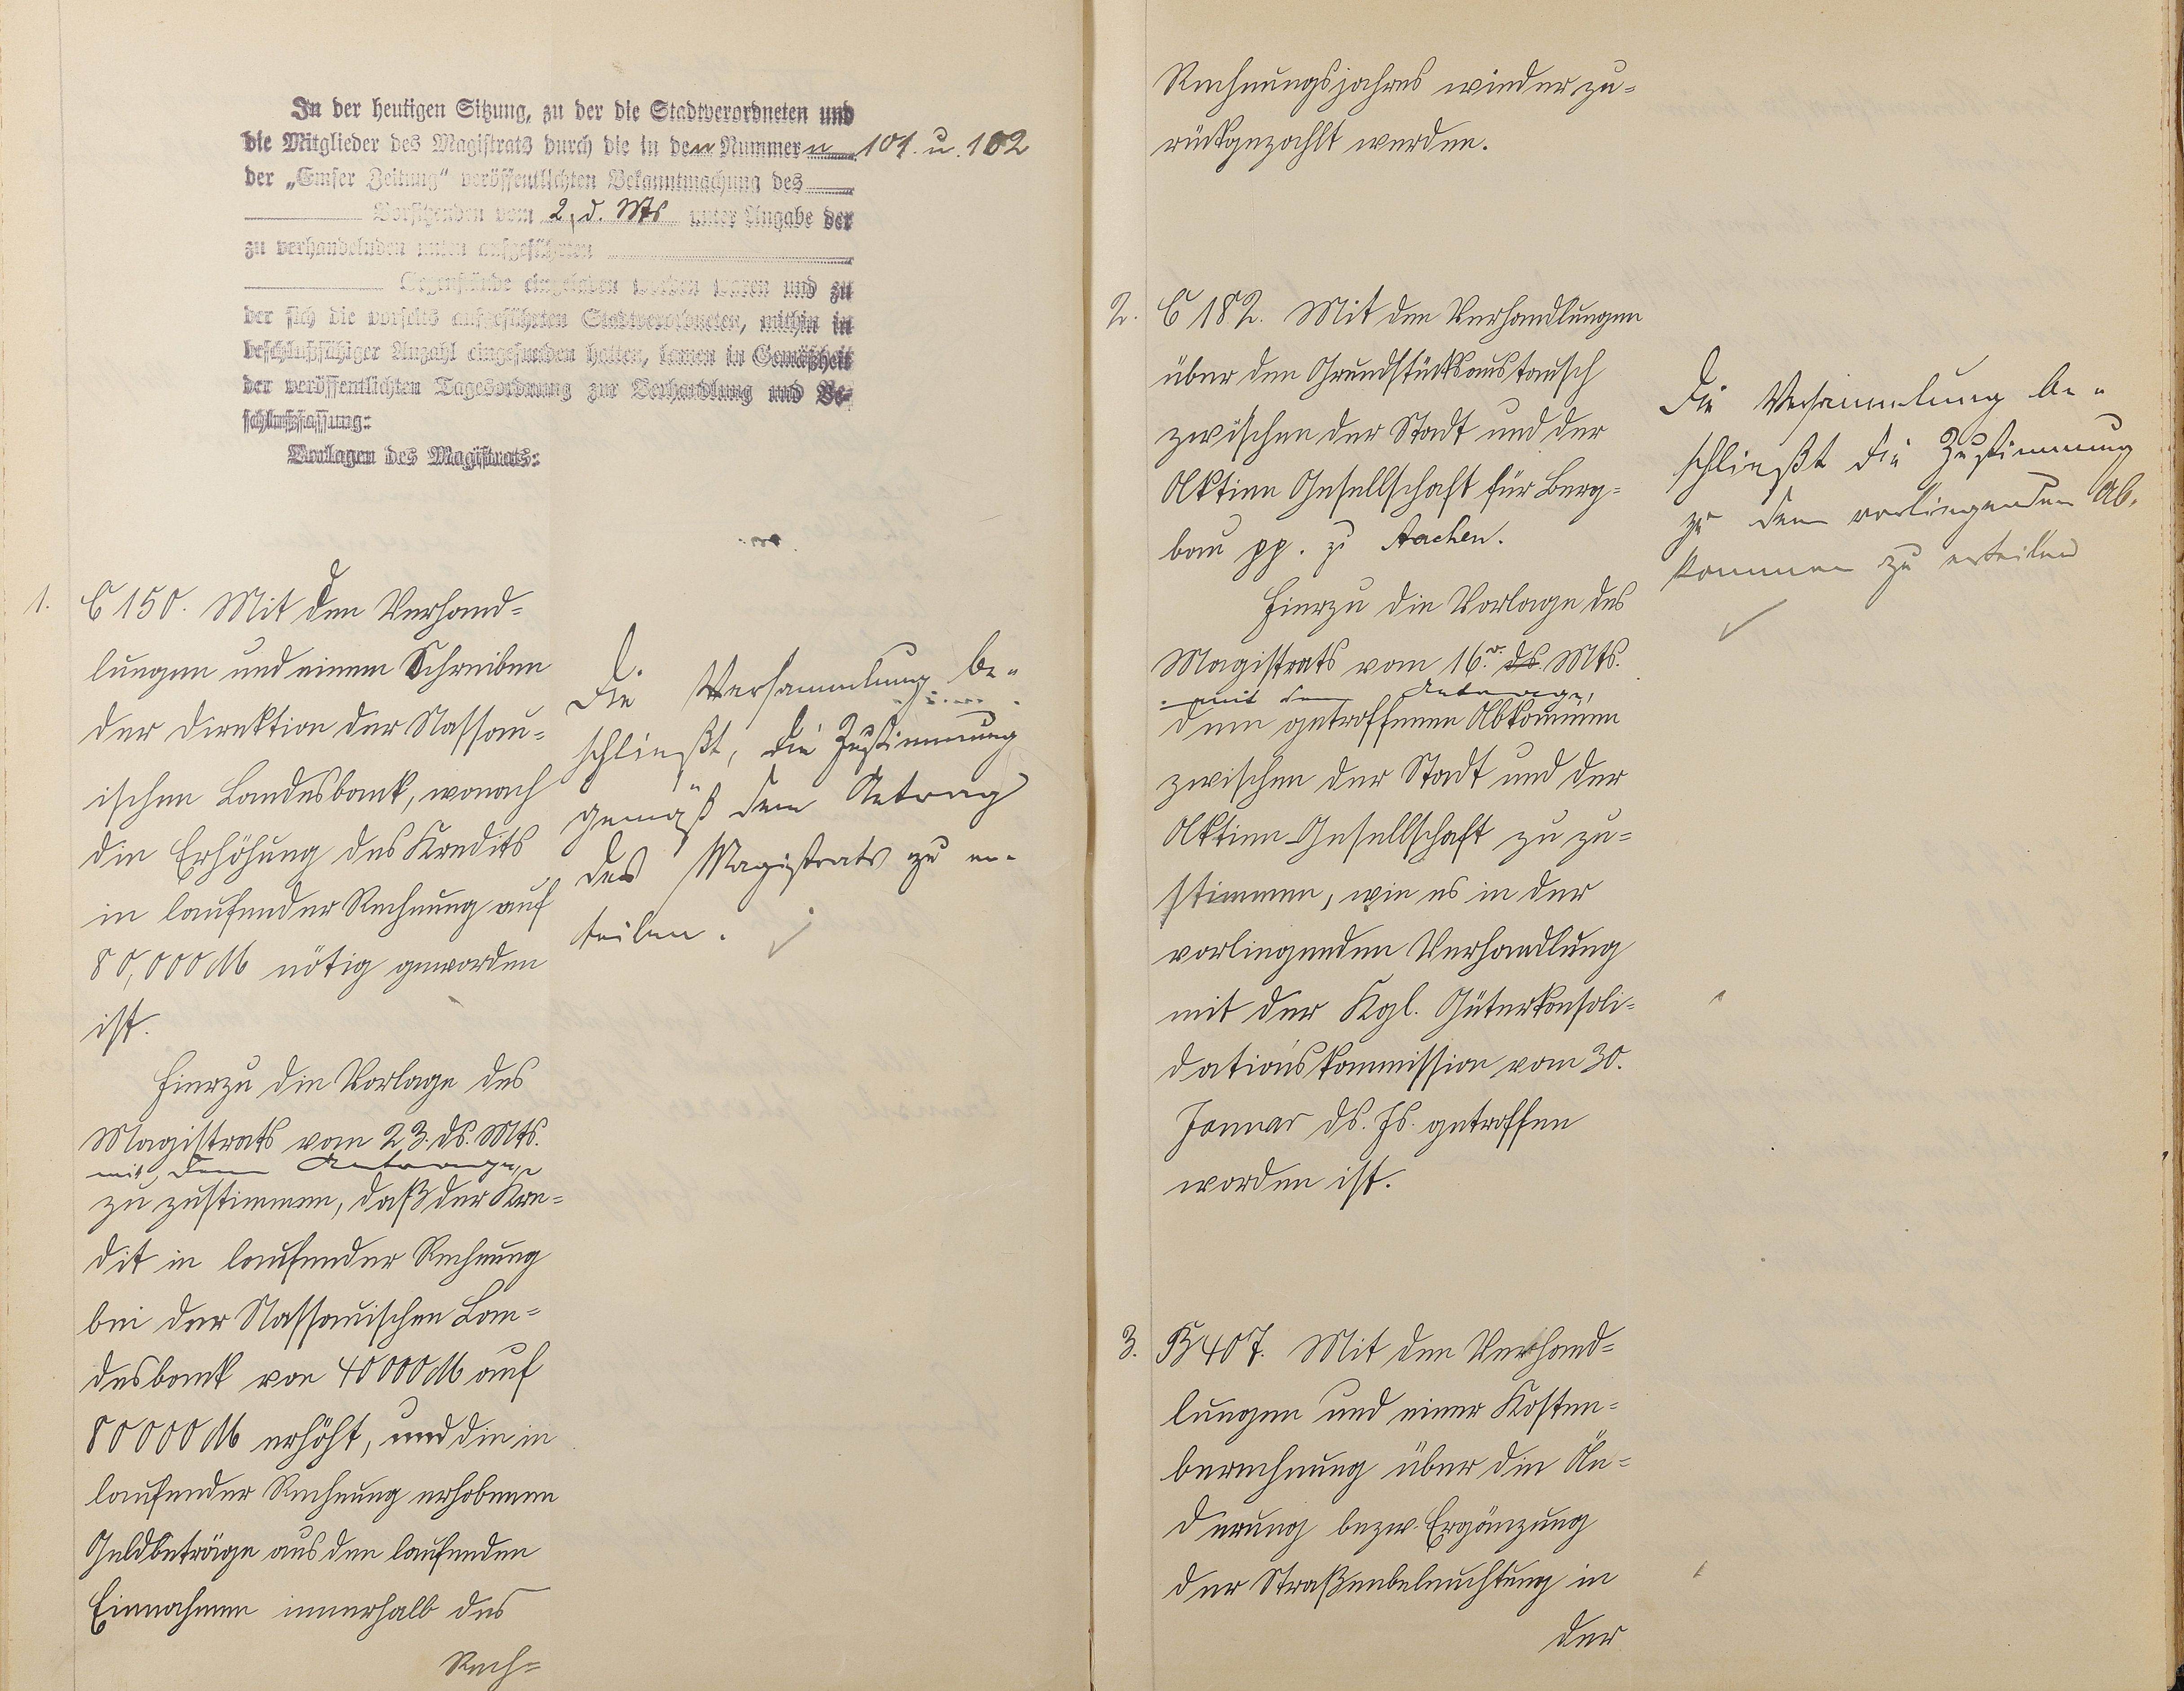 In der heutigen Sitzung, zu der die Stadtverordneten und
die Mitglieder des Magistrats durch die in den Nummern 101. u. 102
der „Emser Zeitung“ veröffentlichten Bekanntmachung des
Vorsitzenden vom 2. d. Mts unter Angabe der
zu verhandelnden unten aufgeführten
Gegenstände eingeladen worden waren und zu
der sich die vorseits aufgeführten Stadtverordneten, mithin in
beschlußfähiger Anzahl eingefunden hatten, kamen in Gemäßheit
der veröffentlichten Tagesordnung zur Verhandlung und Be-
schlußfassung:
Vorlagen des Magistrats:
1. C 150. Mit den Verhand=
lungen und einem Schreiben
der Direktion der Nassau=
ischen Landesbank, wonach
die Erhöhung des Kredits
in laufender Rechnung auf
80,000 M nötig geworden
ist.
Hierzu die Vorlage des
Magistrats vom 23. ds. Mts.
mit dem Antrage,
zu zustimmen, daß der Kre=
dit in laufender Rechnung
bei der Nassauischen Lan=
desbank von 40000 M auf
80000 M erhöht, und die in
laufender Rechnung erhobenen
Geldbeträge aus den laufenden
Einnahmen innerhalb des
Rech=
Die Versammlung be-
schließt, die Zustimmung
gemäß dem Antrag
des Magistrats zu er-
teilen.
Rechnungsjahres wieder zu=
rückgezahlt werden.
2. C 182. Mit den Verhandlungen
über den Grundstücksaustausch
zwischen der Stadt und der
Aktien Gesellschaft für Berg=
bau pp. zu Aachen.
Hierzu die Vorlage des
Magistrats vom 16. v. ds. Mts.
mit dem Antrage,
dem getroffenen Abkommen
zwischen der Stadt und der
Aktien-Gesellschaft zu zu=
stimmen, wie es in der
vorliegenden Verhandlung
mit der Kgl. Güterkonsoli=
dationskommission vom 30.
Januar ds. Js. getroffen
worden ist.
Die Versammlung be-
schließt die Zustimmung
zu dem vorliegenden Ab-
kommen zu erteilen
3. B 407. Mit den Verhand=
lungen und einer Kosten=
berechnung über die Än=
derung bezw. Ergänzung
der Straßenbeleuchtung in
der